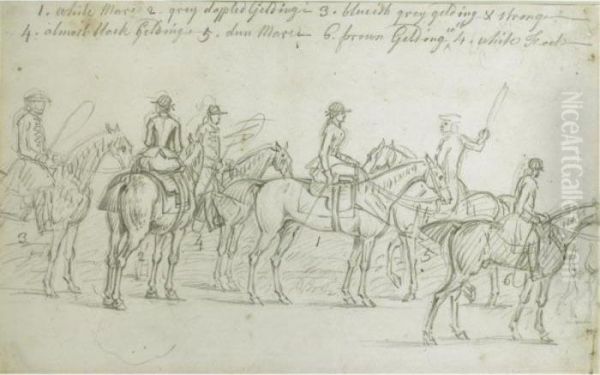 1. White Mare 2. grey dappled Gelding 3. blueish grey gelding & strong
4. almost black Gelding 5. dun Mare 6. brown Gelding, 4. white Feet
3
2
4
1
5
6
NiceArtGallery